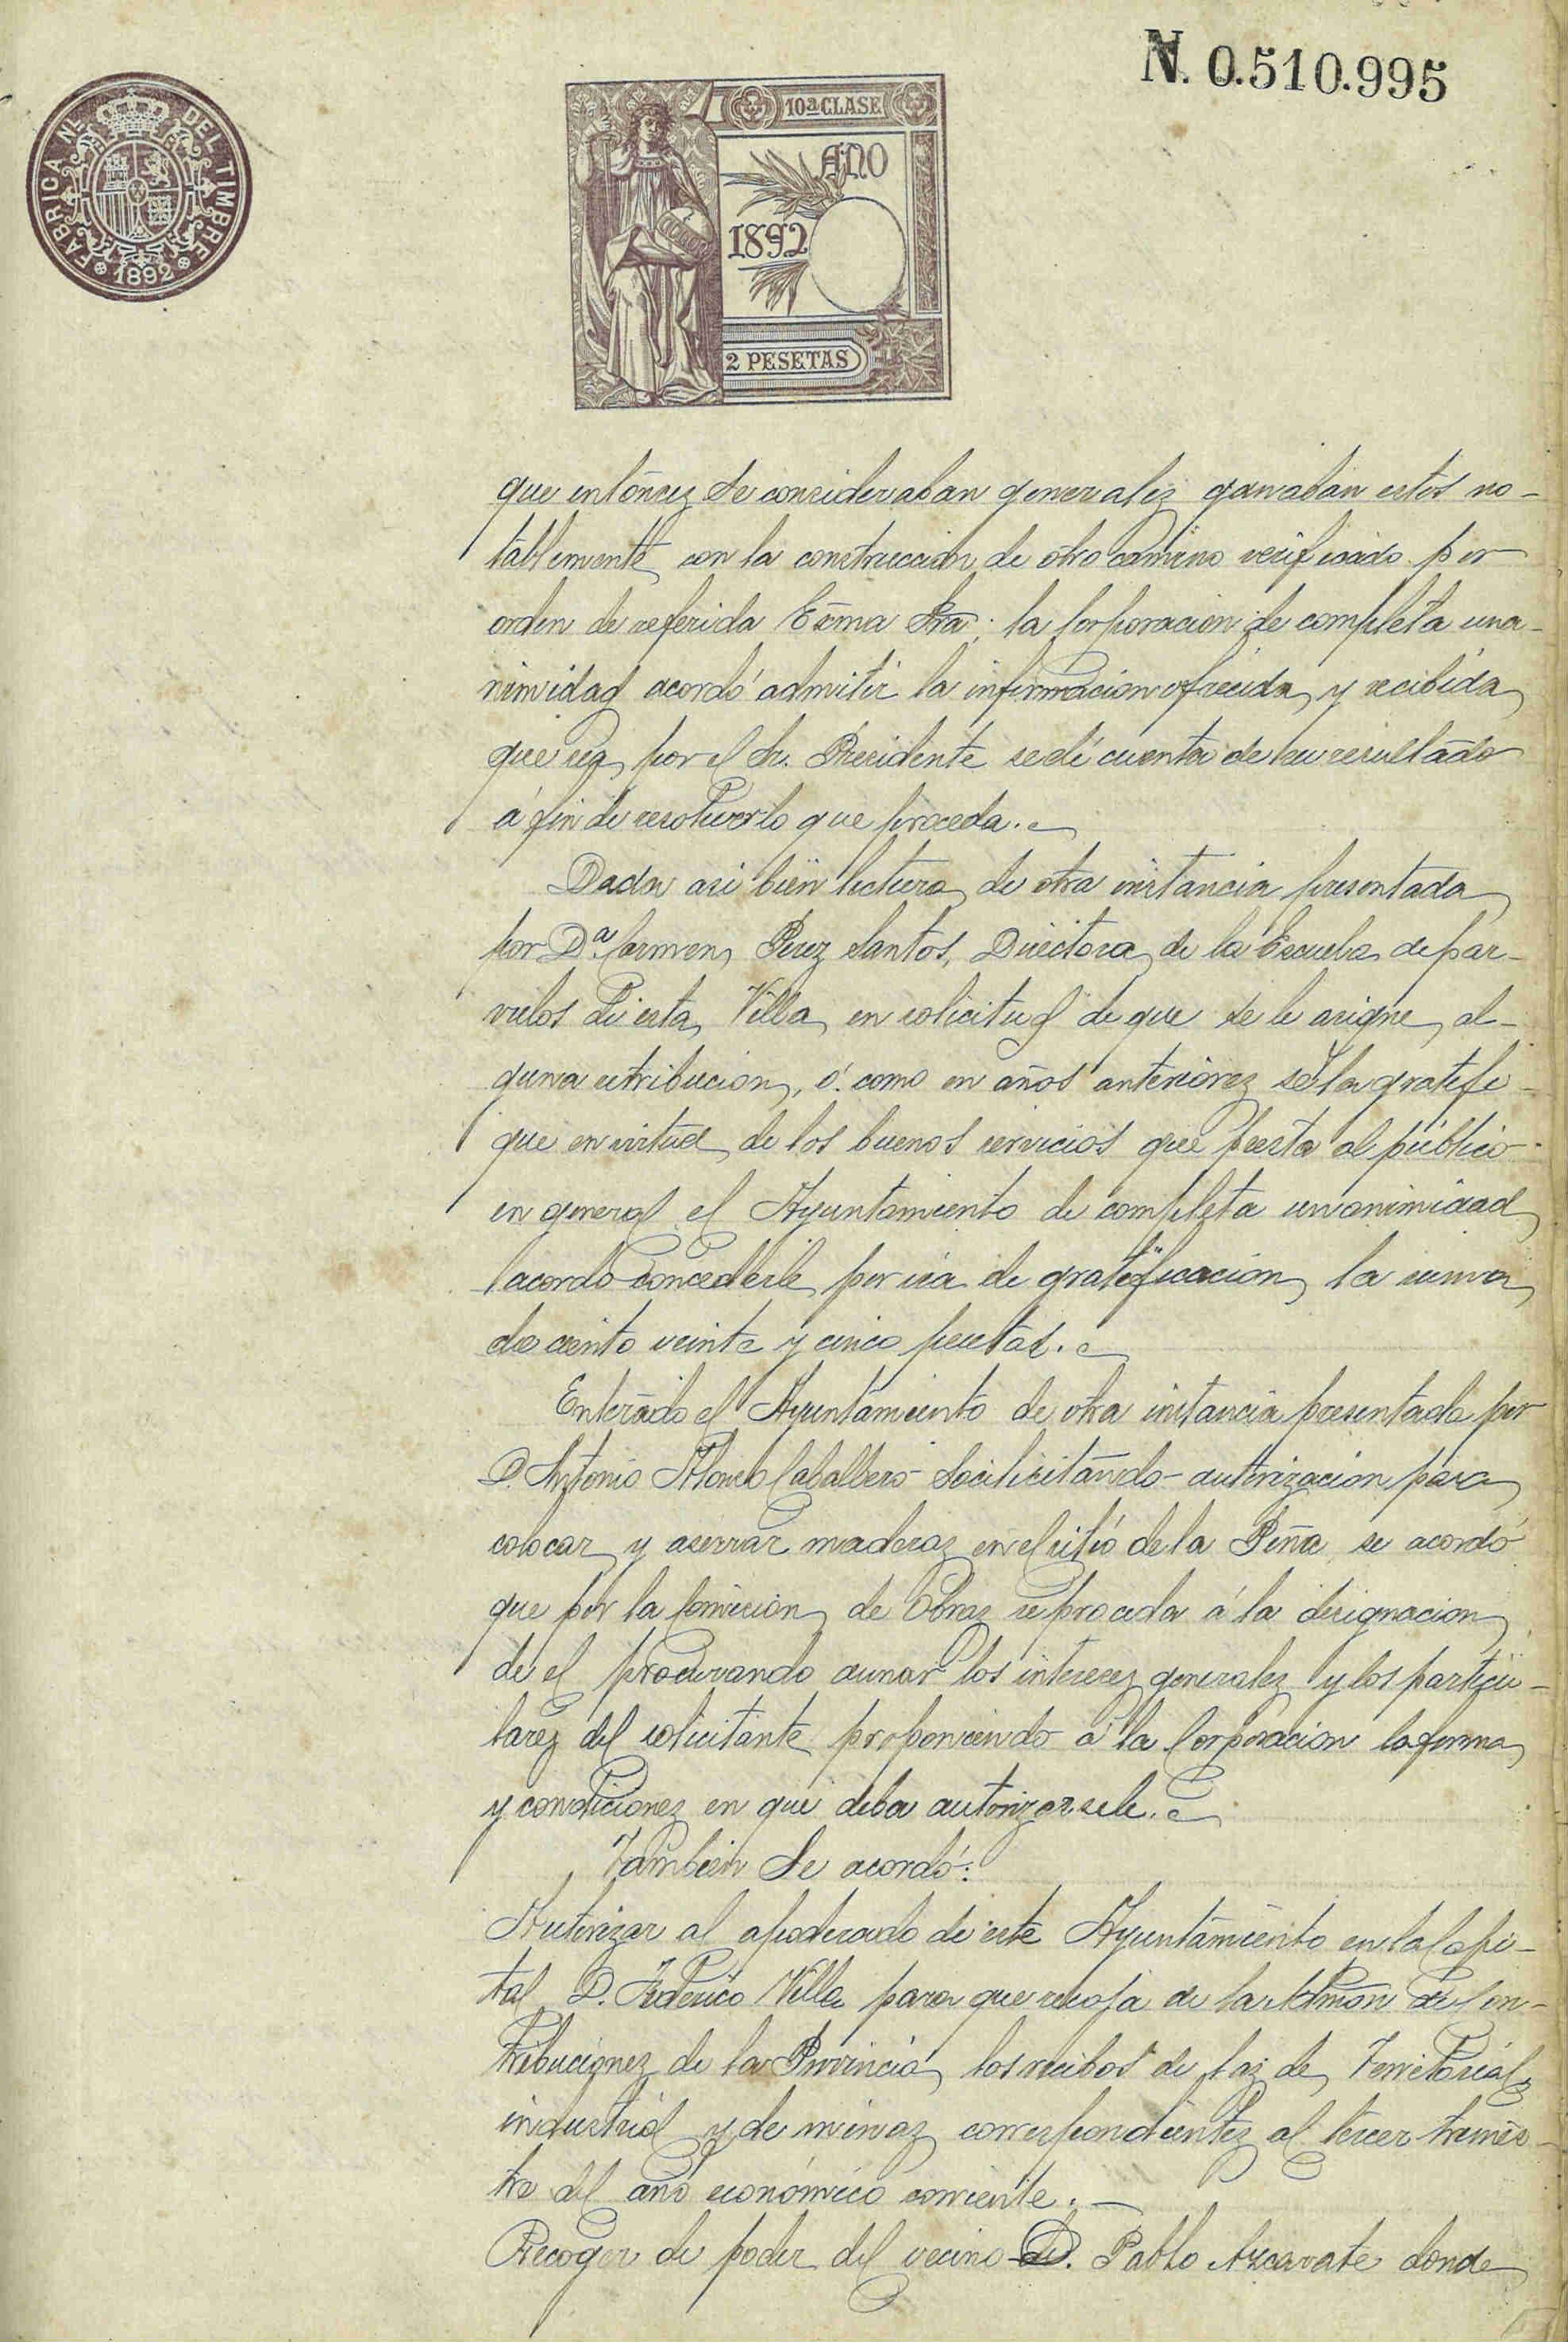 N. 0.510.995
FABRICA NL. DEL TIMBRE
1892
10ª CLASE
AÑO
1892
2 PESETAS
que entónces se consideraban generales ganaban estos no-
tablemente con la construccion de otro camino verificado por
orden de referida Exma Sra; la Corporacion de completa una-
nimidad acordó admitir la informacion ofrecida, y recibida
que sea, por el Sr. Presidente se dé cuenta de su resultado
á fin de resolver lo que proceda.
Dada asi bien lectura de otra instancia presentada
por Dª. Carmen Perez Santos, Directora de la Escuela de pár-
vulos de esta Villa, en solicitud de que se le asigne al-
guna retribucion, ó como en años anteriores se la gratifi-
que en virtud de los buenos servicios que presta al público
en general el Ayuntamiento de completa unanimidad
acordó concederle por via de gratificacion la suma
de ciento veinte y cinco pesetas.
Enterado el Ayuntamiento de otra instancia presentada por
D. Antonio Alonso Caballero solicitando autorizacion para
colocar y aserrar maderas en el sitió de la Peña se acordó
que por la Comision de Obras se proceda á la designacion
de el procurando aunar los intereses generales y los particu-
lares del solicitante proponiendo á la Corporacion la forma
y condiciones en que deba autorizarsele.
Tambien se acordó:
Autorizar al apoderado de este Ayuntamiento en la Capi-
tal D. Federico Villa para que recoja de la Admon de Con-
tribuciones de la Provincia los recibos de las de Territorial,
industrial y de minas correspondientes al tercer trimes-
tre del año económico corriente.
Recoger de poder del vecino D. Pablo Azcarate donde